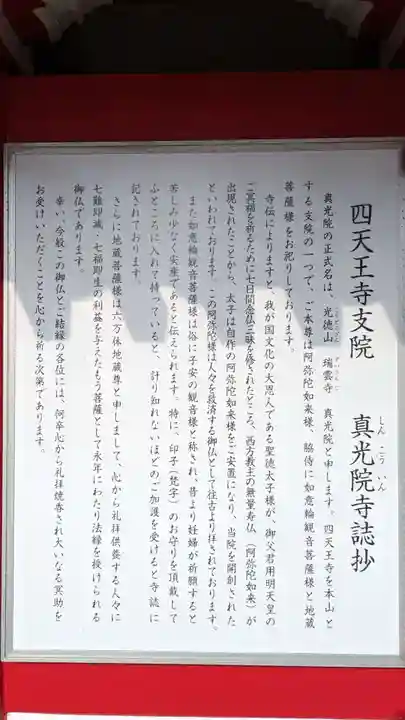 四天王寺支院　真光院寺誌抄
しんこういん
真光院の正式名は、光徳山　瑞雲寺　真光院と申します。四天王寺を本山と
こうとくざん　ずいうんじ
する支院の一つで、ご本尊は阿弥陀如来様、脇侍に如意輪観音菩薩様と地蔵
菩薩様をお祀りしております。
寺伝によりますと、我が国文化の大恩人である聖徳太子様が、御父君用明天皇の
ご冥福を祈るために七日間念仏三昧を修されたところ、西方教主の無量寿仏（阿弥陀如来）が
出現されたことから、太子は自作の阿弥陀如来様をご安置になり、当院を開創された
といわれております。この阿弥陀様は人々を救済する御仏として往古より拝されております。
また如意輪観音菩薩様は俗に子安の観音様と称され、昔より妊婦が祈願すると
苦しみ少なく安産であると伝えられます。特に、印子（梵字）のお守りを頂戴して
ふところに入れて持っていると、計り知れないほどのご加護を受けると寺誌に
記されております。
さらに地蔵菩薩様は六万体地蔵尊と申しまして、心から礼拝供養する人々に
七難即滅、七福即生の利益を与えたもう菩薩として永年にわたり法縁を授けられる
御仏であります。
幸い、今般この御仏とご結縁の各位には、何卒心から礼拝焼香され大いなる冥助を
お受けいただくことを心から祈る次第であります。